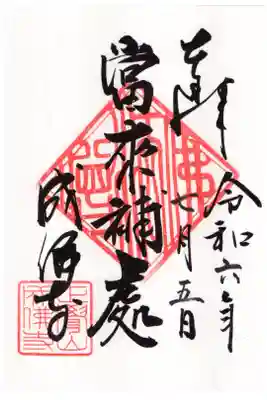 奉拝
令和六年
七月五日
當來補處
成佛寺